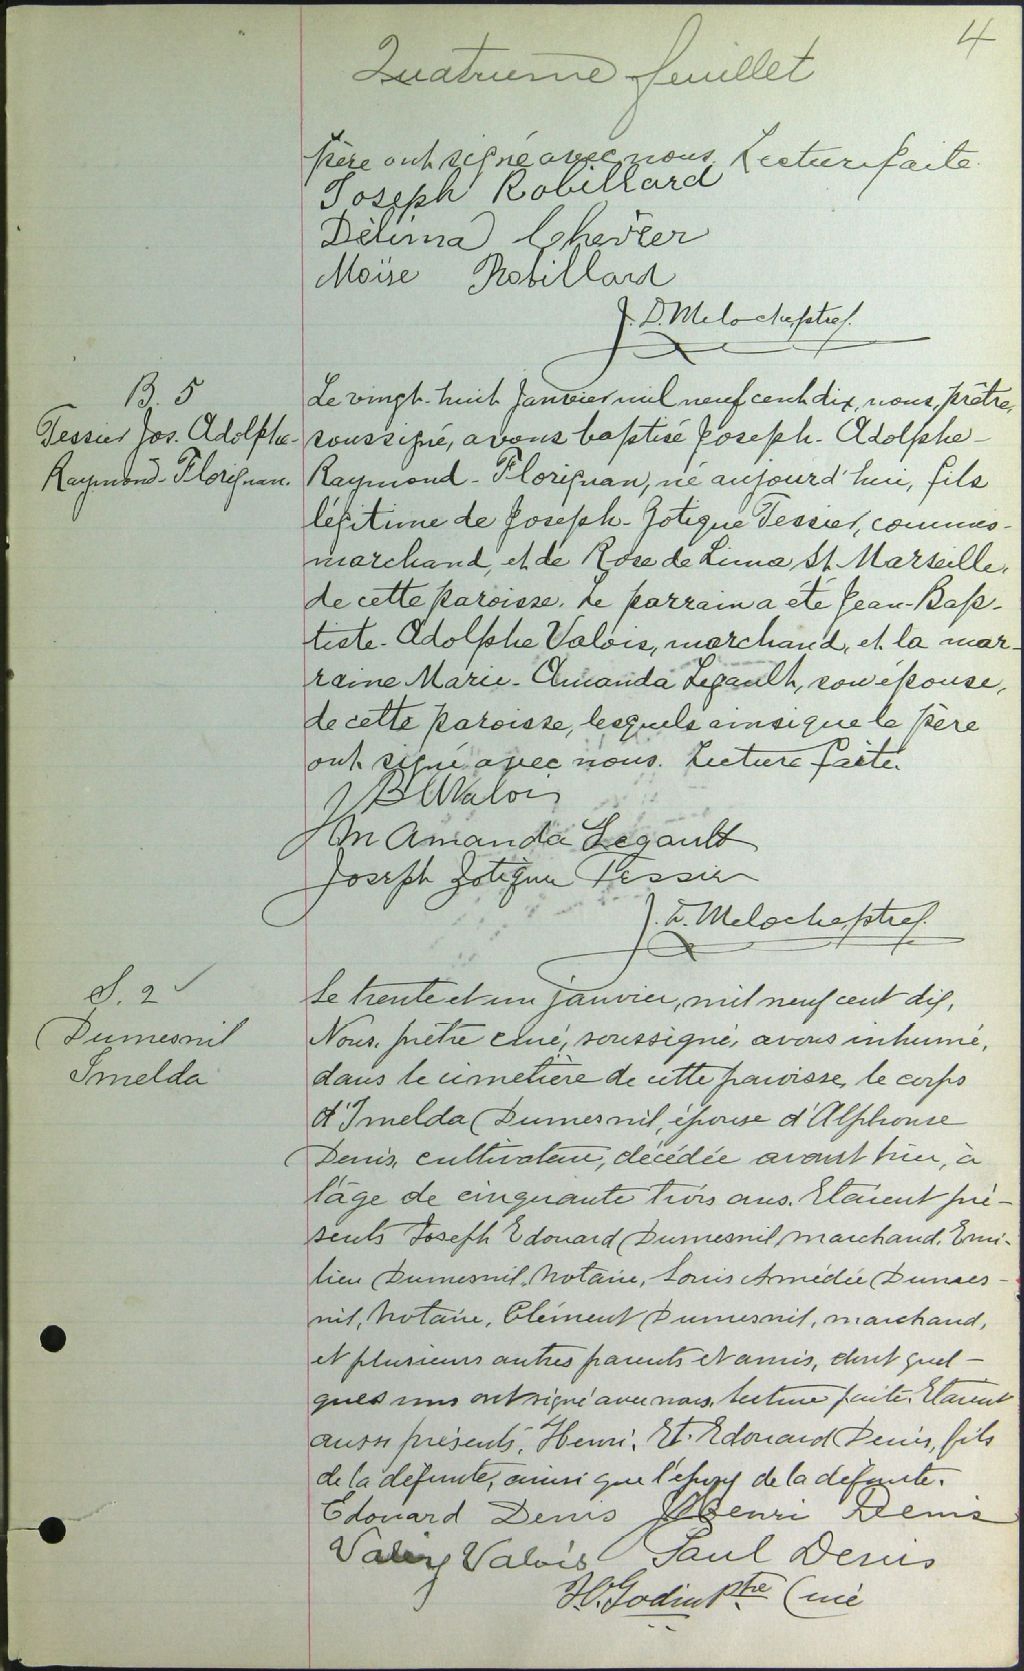 4
Quatrieme feuillet
père ont signé avec nous. Lecture faite.
Joseph Robillard
Délima Chevrier
Moïse Robillard
J. D. Meloche ptre.
B. 5
Tessier Jos. Adolphe-
Raymond-Florignan.
Le vingt-huit Janvier mil neuf cent dix, nous, prêtre,
soussigné, avons baptisé Joseph-Adolphe-
Raymond-Florignan, né aujourd'hui, fils
légitime de Joseph-Zotique Tessier, commis-
marchand, et de Rose de Lima St. Marseille,
de cette paroisse. Le parrain a été Jean-Bap-
tiste-Adolphe Valois, marchand, et la mar-
raine Marie-Amanda Legault, son épouse,
de cette paroisse, lesquels ainsi que le père
ont signé avec nous. Lecture faite.
J B A Valois
M Amanda Legault
Joseph Zotique Tessier
J. D. Meloche ptre.
S. 2
Dumesnil
Imelda
Le trente et un janvier, mil neuf cent dix,
Nous, prêtre curé, soussigné, avons inhumé,
dans le cimetière de cette paroisse, le corps
d'Imelda Dumesnil, épouse d'Alphonse
Denis, cultivateur, décédée avant hier, à
l'âge de cinquante trois ans. Etaient pré-
sents Joseph Edouard Dumesnil marchand, Emi-
lien Dumesnil, Notaire, Louis Amédée Dumes-
nil, Notaire, Clément Dumesnil, marchand,
et plusieurs autres parents et amis, dont quel-
ques uns ont signé avec nous. Lecture faite. Etaient
aussi présents, Henri, Et. Edouard Denis, fils
de la défunte, ainsi que l'époux de la défunte.
Edouard Denis Henri Denis
Valery Valois Paul Denis
H. Godin Ptre Curé